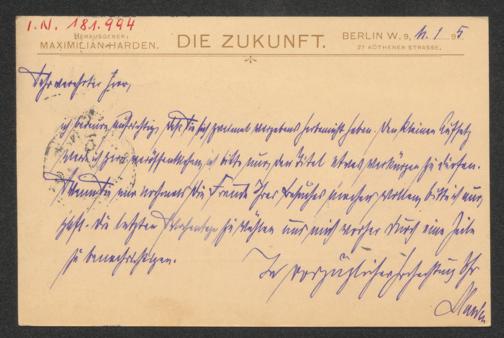 I.N. 181.994
HERAUSGEBER:
MAXIMILIAN HARDEN.
DIE ZUKUNFT.
BERLIN W. 9, 95
27 KÖTHENER STRASSE.
Sehr verehrter Herr,
ich bedaure aufrichtig, daß Sie sich zweimal vergebens herbemüht haben. Den kleinen Aufsatz
werde ich gern veröffentlichen, ich bitte nur, den Titel etwas verkürzen zu dürfen.
Wenn Sie mir nochmals die Freude Ihres Besuches machen wollen, bitte ich nur,
die letzten Wochentage zu wählen und mich vorher durch eine Zeile
zu benachrichtigen.
In vorzüglicher Hochachtung Ihr
Harden